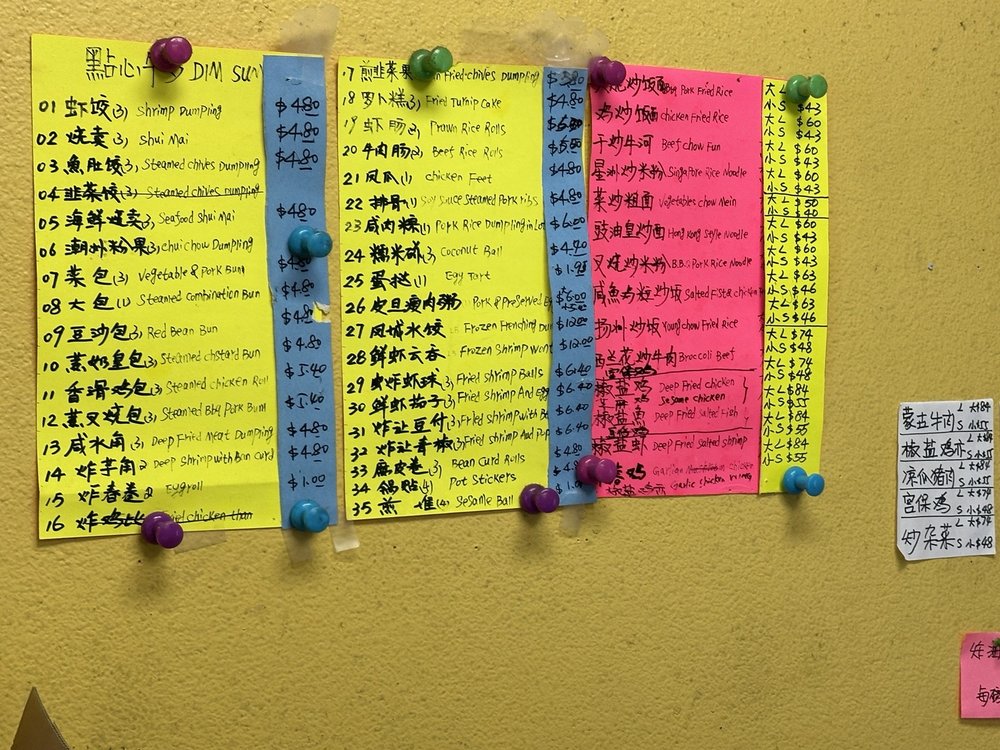 點心 DIM SUM
01 虾饺(3) Shrimp Dumpling $4.80
02 烧卖(3) Shui Mai $4.80
03 魚肚饺(3) Steamed chives Dumpling $4.80
04 韭菜饺(3) Steamed chives Dumpling
05 海鲜烧卖(3) Seafood Shui Mai $4.80
06 潮州粉果(3) chui chow Dumpling
07 菜包(3) Vegetable & Pork Bun $4.80
08 大包(1) Steamed Combination Bun
09 豆沙包(3) Red Bean Bun $4.80
10 蒸奶皇包(3) Steamed chstard Bun $5.40
11 香滑鸡包(3) Steamed chicken Roll
12 蒸叉烧包(3) Steamed Bbq Pork Bun $5.40
13 咸水角(3) Deep Fried Meat Dumpling $4.80
14 炸芋角 $4.80
15 炸春卷 Eggroll $1.00
16 炸鸡 Fried chicken than
17 煎韭菜果 Fried chives Dumpling
18 罗卜糕(3) Fried Turnip Cake $4.80
19 虾肠(3) Prawn Rice Rolls
20 牛肉肠(3) Beef Rice Rolls
21 凤爪(1) chicken Feet $4.80
22 排骨(1) Soy Sauce Steamed Pork ribs $4.80
23 咸肉粽(1) Pork Rice Dumpling in Lot $6.00
24 糯米糍(3) Coconut Ball
25 蛋挞(1) Egg Tart
26 皮旦瘦肉粥 Pork & Preserved $6.00
27 凤城水饺 Frozen Frenching Dum $12.00
28 鲜虾云吞 Frozen Shrimp Wont $12.00
29 炸虾球(3) Fried shrimp Balls $6.40
30 鲜虾茄子(3) Fried Shrimp And egg $6.40
31 炸让豆付(3) Fried shrimp with B $6.40
32 炸让青椒(3) Fried shrimp And $6.40
33 腐皮卷(3) Bean Curd Rolls
34 锅贴(4) Pot Stickers
35 煎堆(4) Sesame Ball
炒饭 Bbq Pork Fried Rice 大L 小S $43
鸡炒饭 chicken Fried Rice 大L $60 小S $43
干炒牛河 Beef chow Fun 大L $60 小S $43
星洲炒米粉 Singapore Rice Noodle 大L $60 小S $43
菜炒粗面 Vegetables chow Mein 大L $50 小S $40
豉油皇炒面 Hong Kong Style Noodle 大L $60 小S $43
叉烧炒米粉 B.B.Q Pork Rice Noodle 大L $60 小S $46
咸魚鸡粒炒饭 Salted Fish & chicken 大L $63 小S $46
扬州炒饭 Young chow Fried Rice
西兰花炒牛肉 Broccoli Beef 大L $74 小S $48
椒盐鸡 Deep Fried chicken 大L $74 小S $48
芝麻鸡 Sesame chicken
椒盐魚 Deep Fried Salted Fish 大L $64 小S $55
椒盐虾 Deep Fried Salted Shrimp 大L $84 小S $55
Garlic chicken wing
蒙古牛肉 L 大$84 S 小$55
椒盐鸡亦 S 小$55
京保猪肉 L 大$84 S 小$55
宫保鸡 L 大$74 S 小$48
炒杂菜 L 大$74 S 小$48